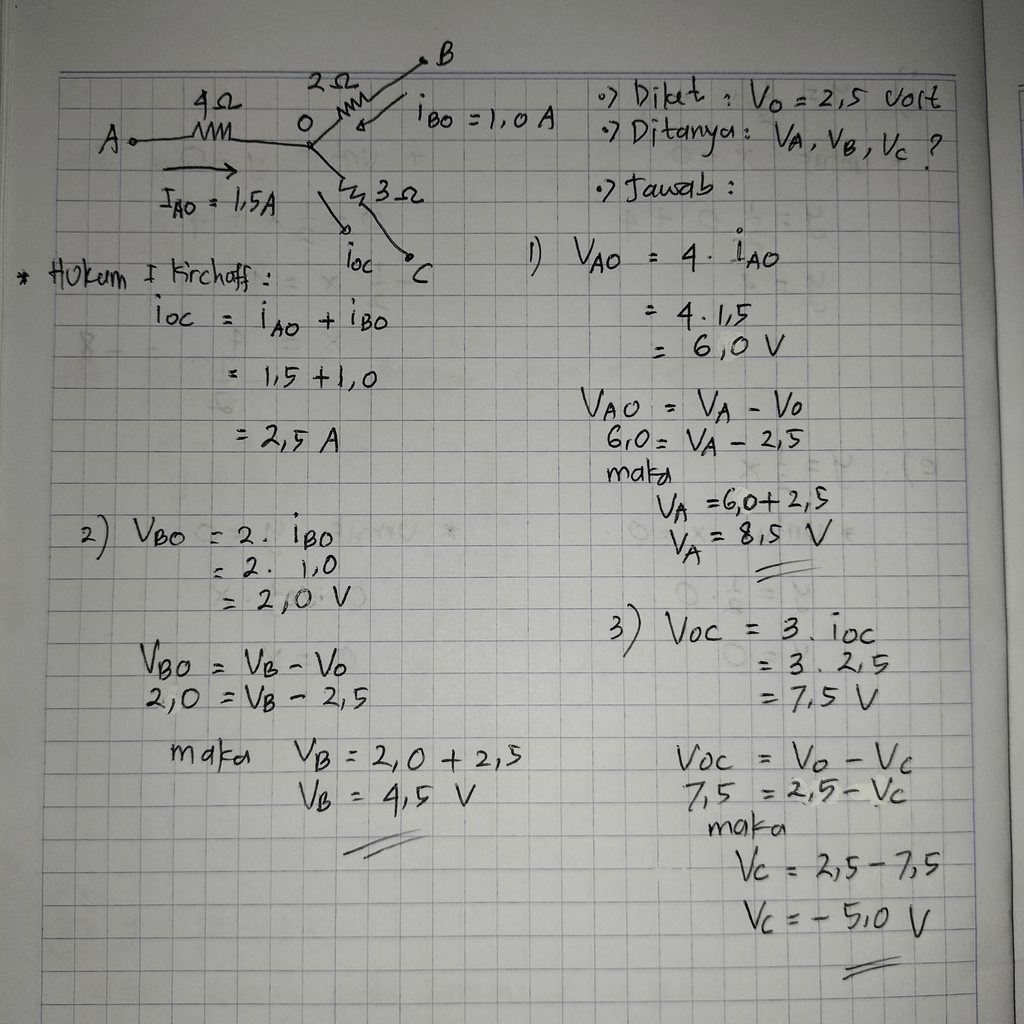 B
2Ω
4Ω
O
A
i_BO = 1,0 A
I_AO = 1,5A
3Ω
i_OC
C
•> Diket : V_O = 2,5 volt
•> Ditanya : V_A, V_B, V_C ?
•> Jawab :
* Hukum I Kirchoff :
i_OC = i_AO + i_BO
= 1,5 + 1,0
= 2,5 A
1) V_AO = 4 . i_AO
= 4 . 1,5
= 6,0 V
V_AO = V_A - V_O
6,0 = V_A - 2,5
maka
V_A = 6,0 + 2,5
V_A = 8,5 V
2) V_BO = 2 . i_BO
= 2 . 1,0
= 2,0 V
V_BO = V_B - V_O
2,0 = V_B - 2,5
maka V_B = 2,0 + 2,5
V_B = 4,5 V
3) V_OC = 3 . i_OC
= 3 . 2,5
= 7,5 V
V_OC = V_O - V_C
7,5 = 2,5 - V_C
maka
V_C = 2,5 - 7,5
V_C = - 5,0 V